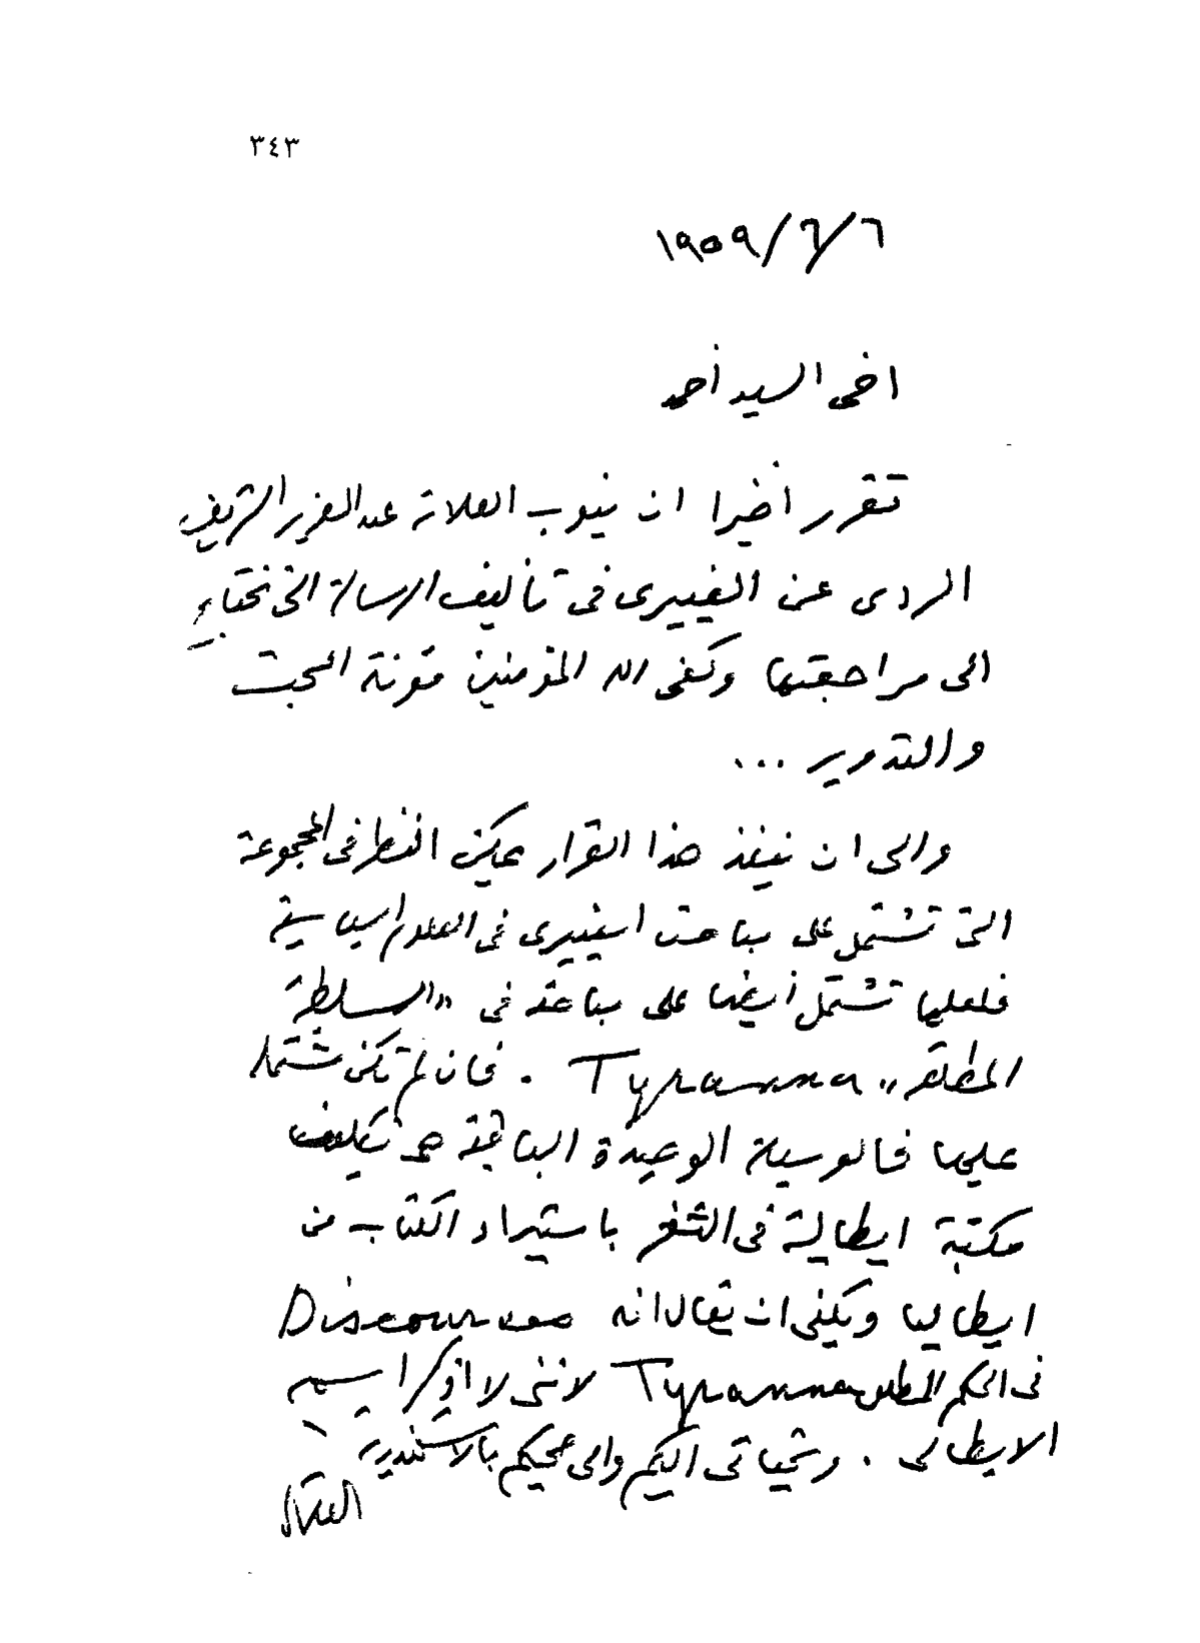 ٣٤٣
١٩٥٩/٦/٦
اخى السيد أحمد
تقرر أخيرا ان ينوب العلامة عبد العزيز الشريف
الردى عن الفييرى فى تأليف الرسالة التى نحتاج
الى مراجعتها وكفى الله المؤمنين مئونة البحث
والتدوير ...
والى ان ينفذ هذا القرار يمكن النظر فى المجموعة
التى تشتمل على مباحث الفييرى فى العلوم السياسية
فلعلها تشتمل أيضا على مباحثه فى «السلطة
المطلقة» Tyranna . فان لم تكن مشتملة
عليها فالوسيلة الوحيدة الباقية هى تكليف
مكتبة ايطالية فى الثغر باستيراد الكتاب من
ايطاليا ويكفى ان يقال انه Discourses
فى الحكم المطلق Tyranna لاننى لا اذكر اسمه
الايطالى . وتحياتى اليكم والى صحبكم بالاسكندرية
العقاد